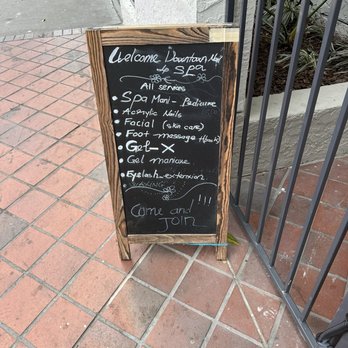 Welcome Downtown Nail
& SPA
All services
Spa Mani - Pedicure
Acrylic Nails
Facial (skin care)
Foot-massage
Gel-X
Gel manicure
Eyelash-extension
WAXING!
Come and
JOIN!!!